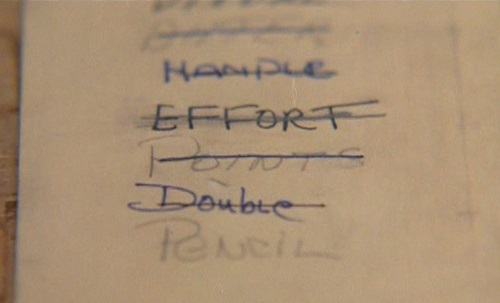 HANDLE
EFFORT
POINTS
Double
PENCIL